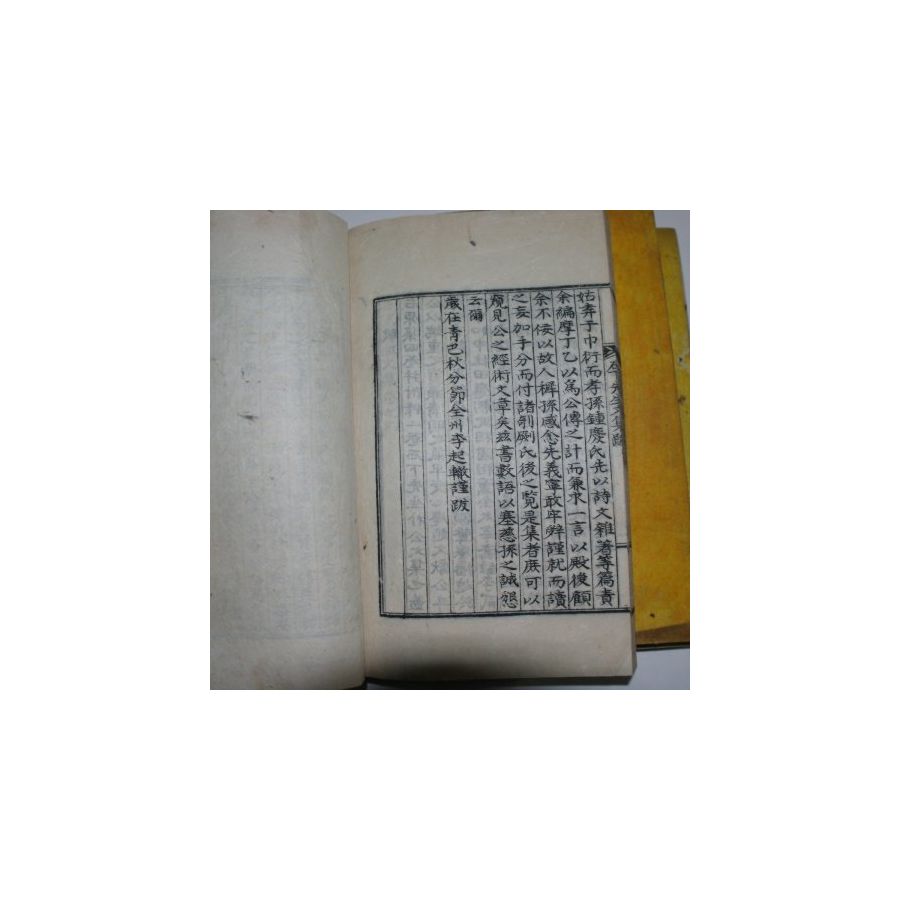 姑弃于巾衍而孝孫鍾慶氏先以詩文雜著等篇責
余編摩丁乙以爲公傳之計而兼求一言以殿後顧
余不佞以故人穉孫感念先義寧敢牢辤謹就而讀
之妄加手分而付諸剞劂氏後之覽是集者庶可以
窺見公之經術文章矣玆書數語以塞慈孫之誠懇
云爾
歲在青巴秋分節全州李起轍謹跋